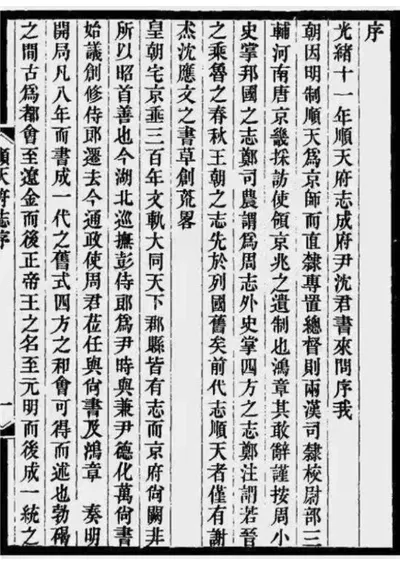 序
光緒十一年順天府志成府尹沈君書來問序我
朝因明制順天爲京師而直隸專置總督則兩漢司隸校尉部三
輔河南唐京畿採訪使領京兆之遺制也鴻章其敢辭謹按周小
史掌邦國之志鄭司農謂爲周志外史掌四方之志鄭注謂若晉
之乘魯之春秋王朝之志先於列國舊矣前代志順天者僅有謝
杰沈應文之書草創疏畧
皇朝宅京垂三百年文軌大同天下郡縣皆有志而京府尙闕非
所以昭首善也今湖北巡撫彭侍郎爲尹時與兼尹德化萬尙書
始議創修侍郎遷去今通政使周君莅任與尙書及鴻章 奏明
開局凡八年而書成一代之舊式四方之和會可得而述也勃碣
之間古爲都會至遼金而後正帝王之名至元明而後成一統之
順天府志序
一